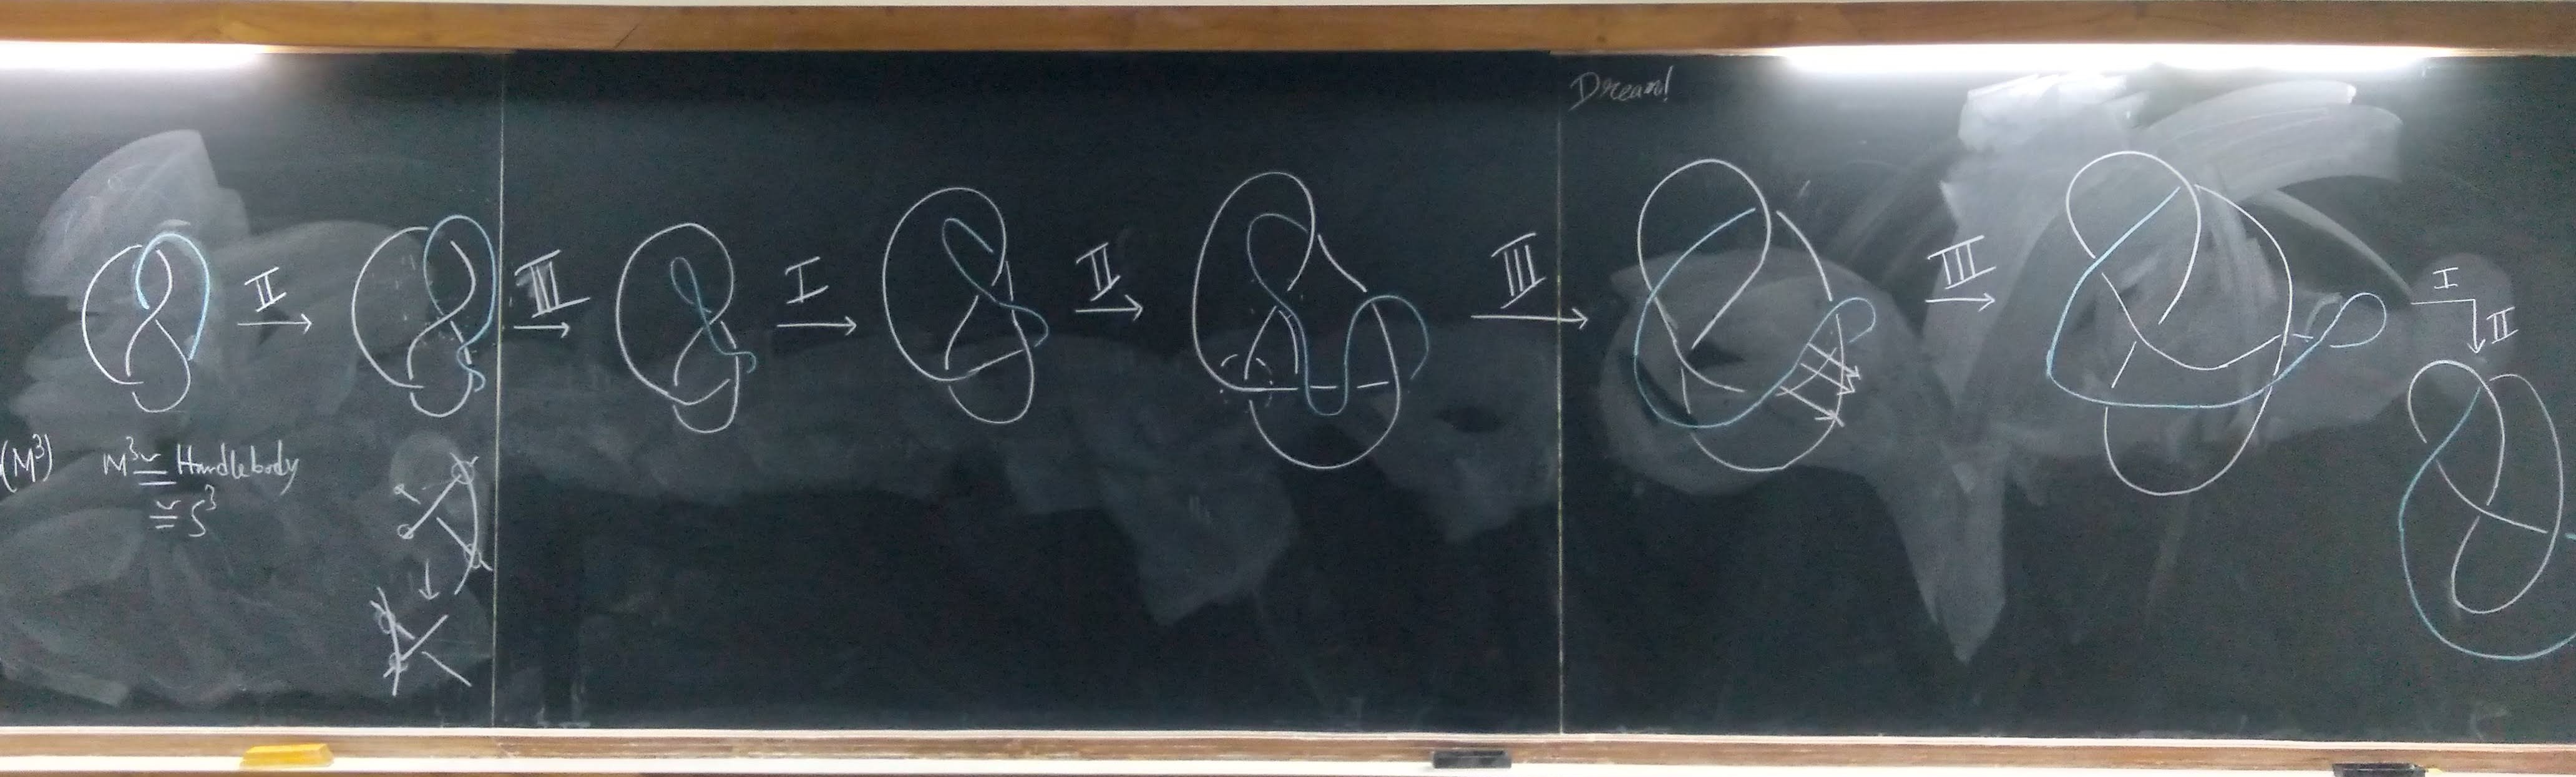 Dream!
II
III
I
II
III
III
I
II
(M³) M³ ≅ Handlebody
≅ S³